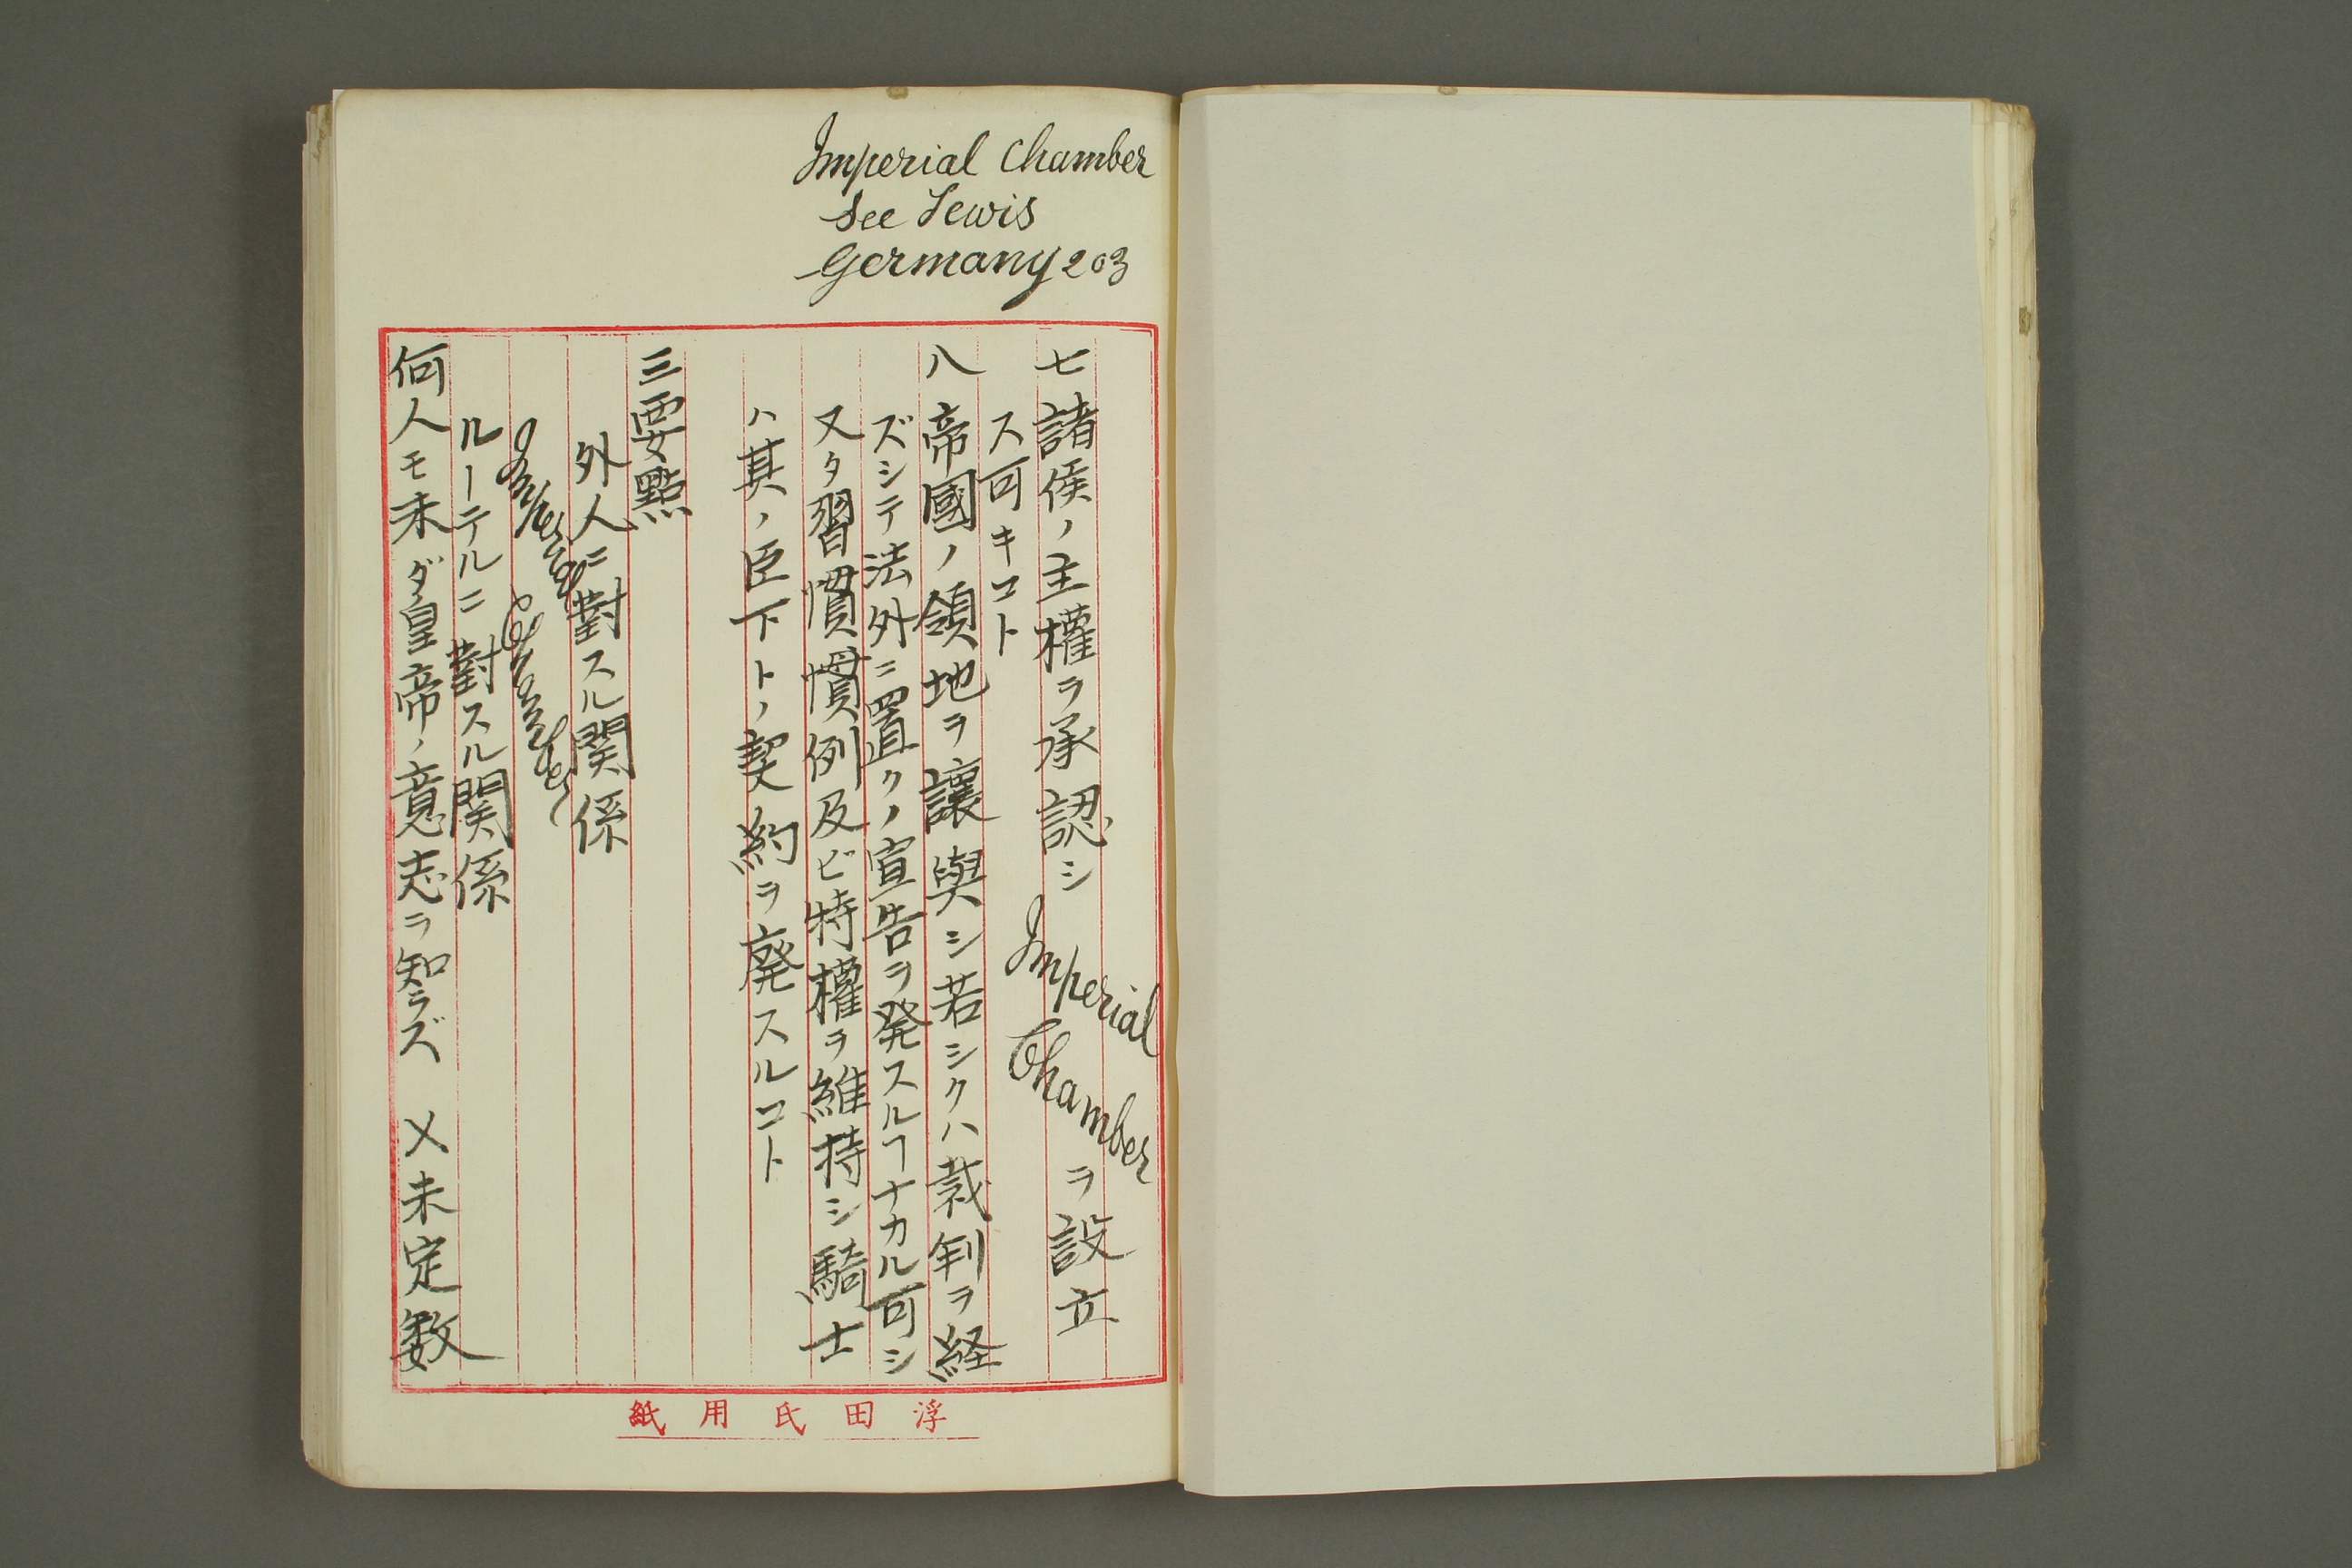 Imperial Chamber
See Lewis
Germany 203
七諸侯ノ主權ヲ承認シ Imperial Chamber ヲ設立
ス可キコト
八帝國ノ領地ヲ讓與シ若シクハ裁判ヲ経
ズシテ法外ニ置クノ宣告ヲ発スルヿナカル可シ
又タ習慣慣例及ビ特權ヲ維持シ騎士
ハ其ノ臣下トノ契約ヲ廃スルコト
三要點
外人ニ對スル関係
Imperial Chamber
ルーテルニ對スル関係
何人モ未ダ皇帝ノ意志ヲ知ラズ 乂未定数
浮田氏用紙